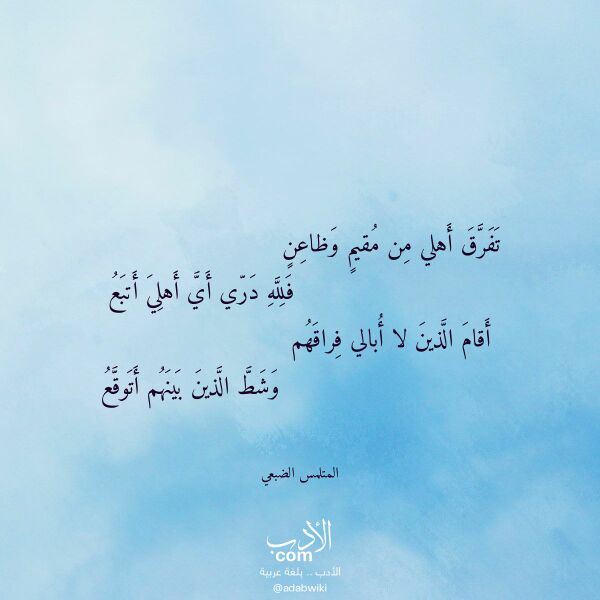 تَفَرَّقَ أَهلي مِن مُقيمٍ وَظاعِنٍ
فَلِلَّهِ دَرّي أَيَّ أَهلِيَ أَتبَعُ
أَقامَ الَّذينَ لا أُبالي فِراقَهُم
وَشَطَّ الَّذينَ بَينَهُم أَتَوَقَّعُ
المتلمس الضبعي
الأدب
com
الأدب .. بلغة عربية
@adabwiki